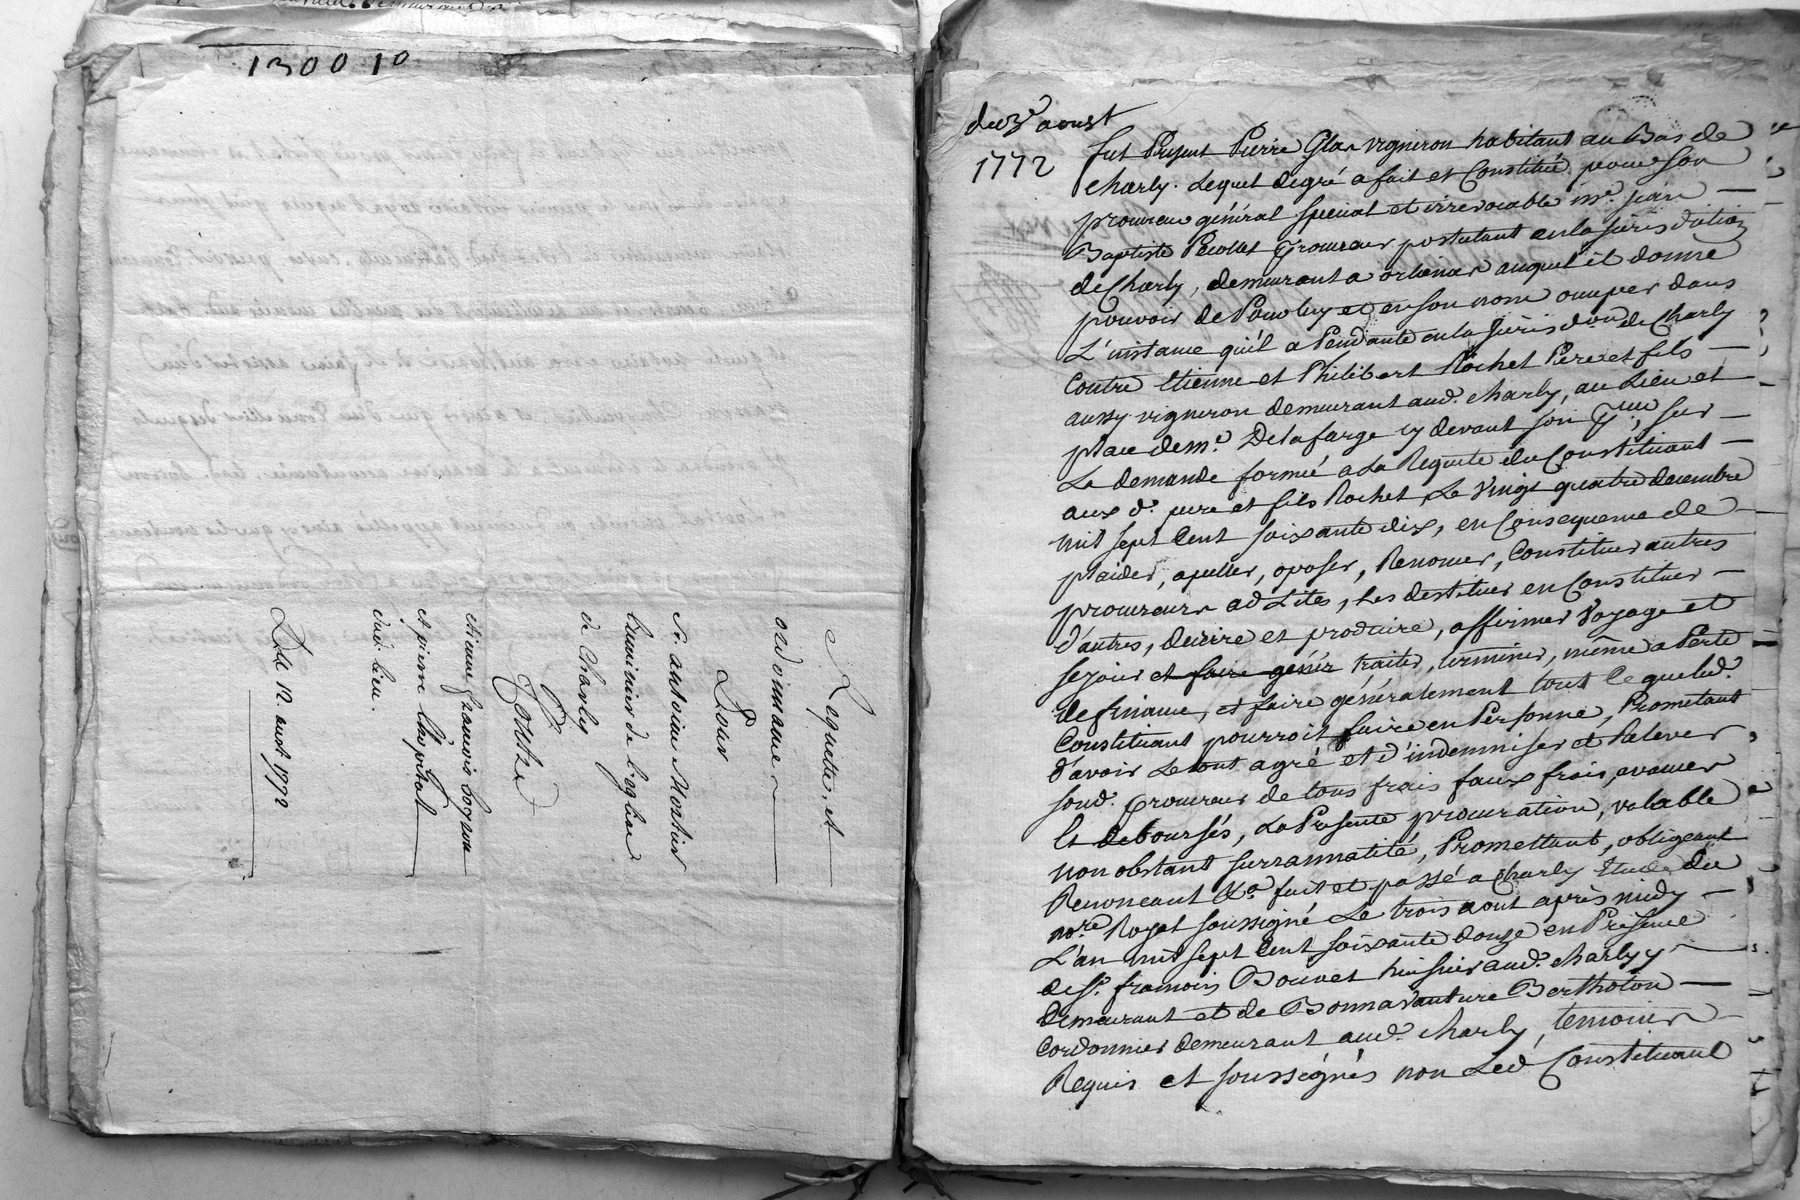 130010
Requette, et
ordonnance
Pour
Sr. antoine Mortier
luminier de l'eglise
de Charly
Contre
etienne françois
et pierre l'hopital
dudt. lieu.
Du 12. aoust 1772
du 3e aoust
1772
fut Present Pierre Glas vigneron habitant au Bas de
charly. Lequel degré a fait et Constitué pour son
procureur général special et irrevocable me. jean
Baptiste procureur postulant en la jurisdiction
de Charly, demeurant a orlienas auquel il donne
pouvoir de Pour luy et en son nom occuper dans
L'instance qu'il a Pendante en la jurisdon. de Charly
Contre Etienne et Philibert Rochet Pere et fils
aussy vigneron demeurant aud. charly, au Lieu et
place de me. Delafarge cy devant son preur, sur
La demande formée a La Requete du Constituant
aux d. pere et fils Rochet Le vingt quatre decembre
mil sept Cent soixante dix, en Consequence de
plaider, apeller, oposer, Renoncer, Constituer autres
procureurs ad Lites, Les destituer en Constituer
d'autres, decrire et produire, affirmer voyage et
sejour et faire génér traiter, terminer, même a Perte
de finance, et faire généralement tout Ce que led.
Constituant pourroit faire en Personne, Prometant
d'avoir Le tout agré et d'indemniser et Relever
sond. procureur de tous frais faux frais, avances
et deboursés, La Presente procuration, valable
non obstant surrannatité, Promettant, obligeant
Renonceant &a. fait et passé a Charly Etude du
nore. Royal soussigné Le trois aout après midy
L'an mil sept Cent soixante douze en Presence
de sr. francois Bouvet huissier aud. charly y
demeurant et de Bonnavanture Bertholon
Cordonnier demeurant aud. charly, temoins
Requis et soussignés non Led. Constituant